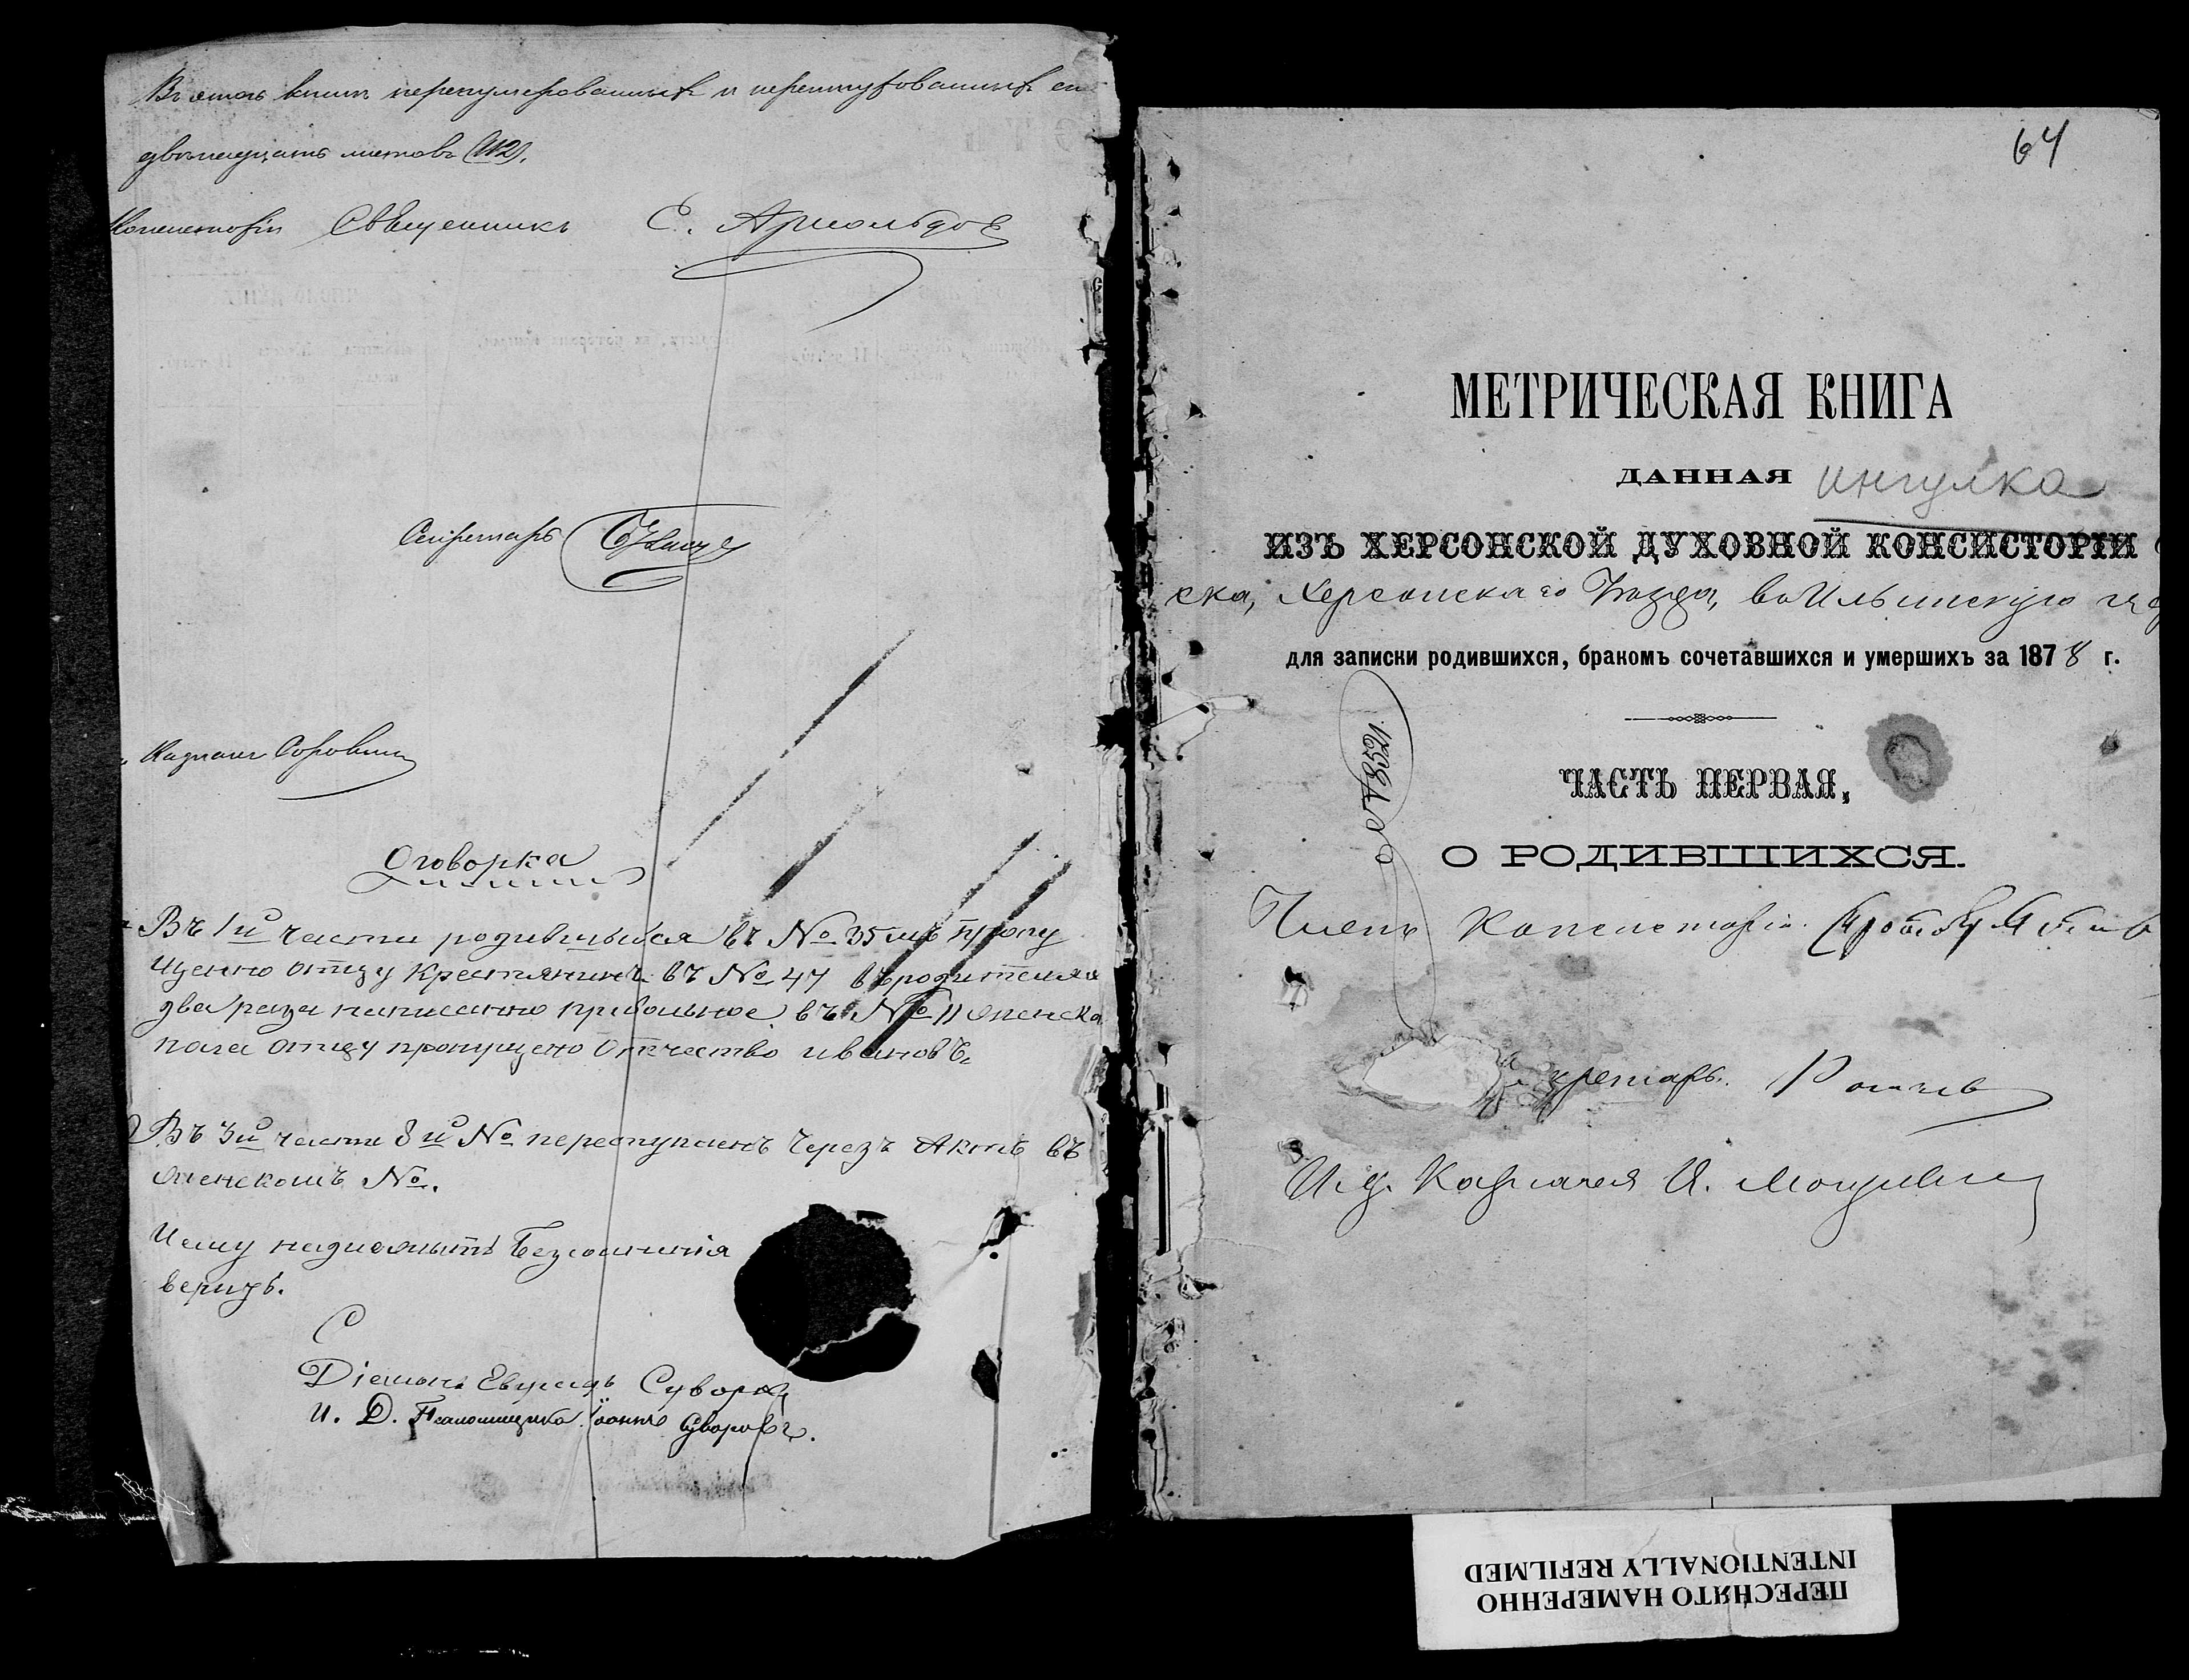 Въ этой книге перенумерованныхъ и перешнурованныхъ
двенадцать листовъ (112).
Консисторіи Священникъ С. Арнольдов
Секретарь
Казначей
Оговорка
Въ 1й части родившыйся въ № 35мъ пропу
щенно отцу Крестянинъ въ № 47 въ родителяхъ
два раза написанно привольное въ № 11 женска
пола отцу пропущено Отчество ивановъ.
Въ 3й части 8й № переступленъ Черезъ Актъ въ
женскомъ №.
Чему надлежытъ
веритъ.
Діяконъ Суворов
И. Д. Псаломщика Іоаннъ Суворовъ.
64
МЕТРИЧЕСКАЯ КНИГА
ДАННАЯ ингулка
ИЗЪ ХЕРСОНСКОЙ ДУХОВНОЙ КОНСИСТОРІИ
ска, Херсонскаго Уезда, въ Ильинскую
для записки родившихся, бракомъ сочетавшихся и умершихъ за 1878 г.
№ 8521
ЧАСТЬ ПЕРВАЯ,
О РОДИВШИХСЯ.
Членъ Консисторіи
кретарь
И. д. Казначея И.
ПЕРЕСНЯТО НАМЕРЕННО
INTENTIONALLY REFILMED